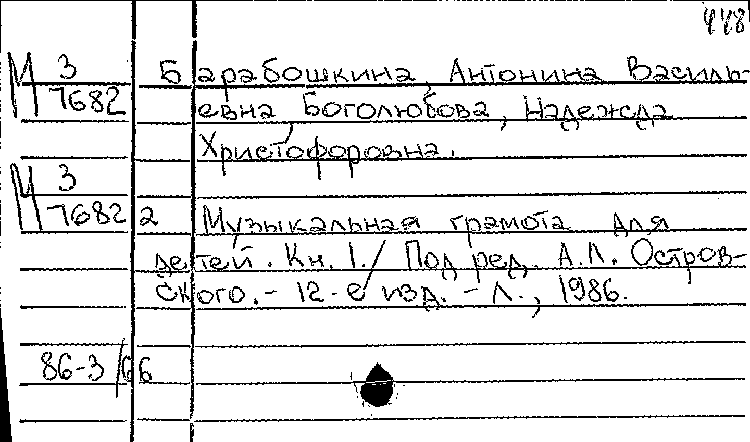 448
М 3 Барабошкина, Антонина Василь-
7682 евна, Боголюбова, Надежда
Христофоровна.
М 3
7682 2 Музыкальная грамота для
детей. Кн. 1./ Под ред. А.Л. Остров-
ского. - 12-е изд. - Л., 1986.
86-3/66